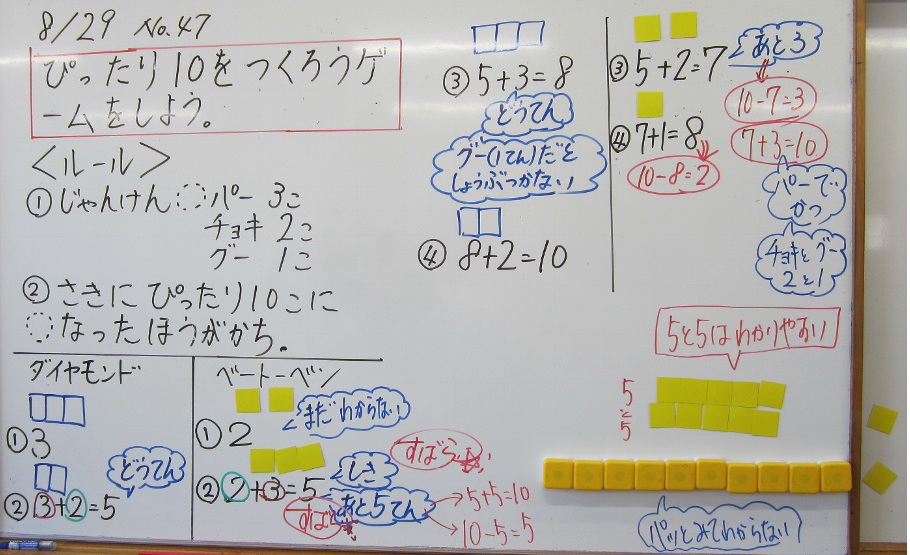 8/29 No.47
ぴったり10をつくろうゲ
ームをしよう。
<ルール>
①じゃんけん パー 3こ
チョキ 2こ
グー 1こ
②さきにぴったり10こに
なったほうがかち。
ダイヤモンド
①3
どうてん
②3+2=5
ベートーベン
まだわからない
①2
すばらしい
②2+3=5
しき
あと5てん
5+5=10
10-5=5
③5+3=8
どうてん
グー(1てん)だと
しょうぶつかない
④8+2=10
③5+2=7
あと3
10-7=3
④7+1=8
7+3=10
10-8=2
パーで
かつ
チョキとグー
2と1
5と5はわかりやすい
5
と
5
パッとみてわからない